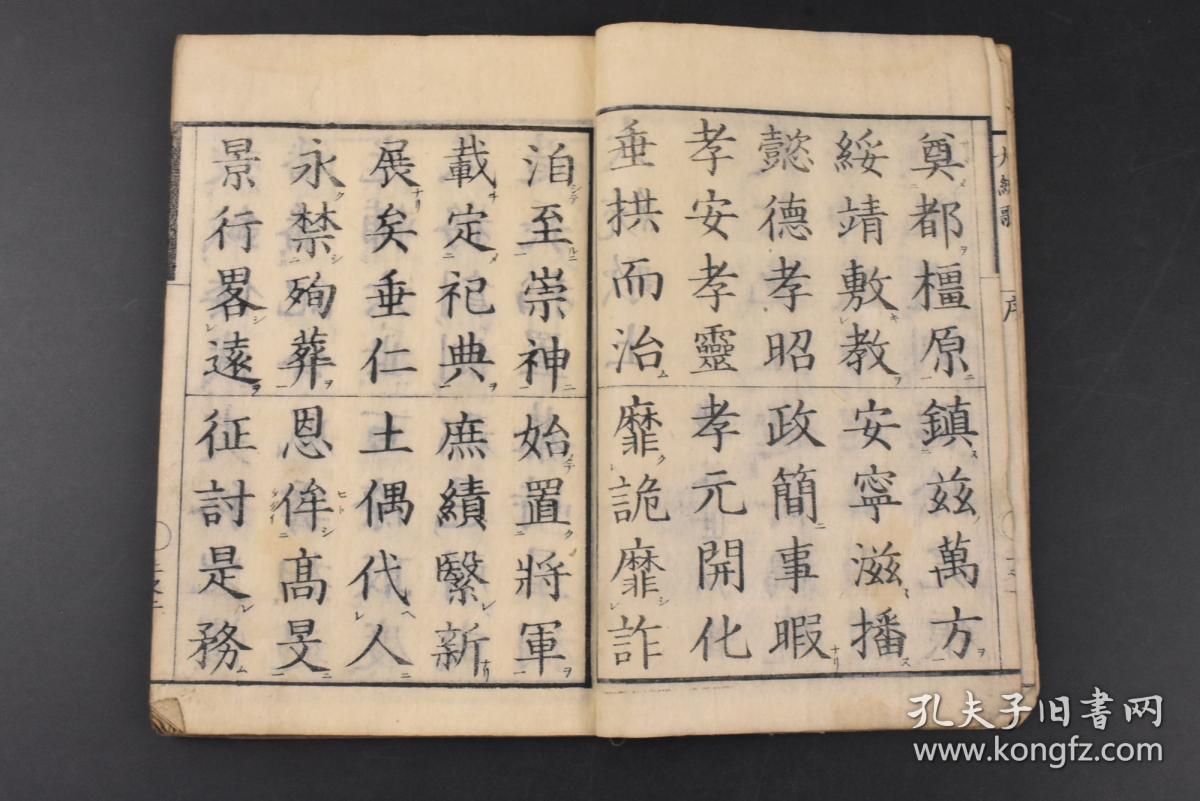 奠都橿原鎮玆萬方
綏靖敷教安寧滋播
懿德孝昭政簡事暇
孝安孝靈孝元開化
垂拱而治靡詭靡詐
洎至崇神始置將軍
載定祀典庶績繄新
展矣垂仁土偶代人
永禁殉葬恩侔高旻
景行畧遠征討是務
序
孔夫子旧書网
www.kongfz.com